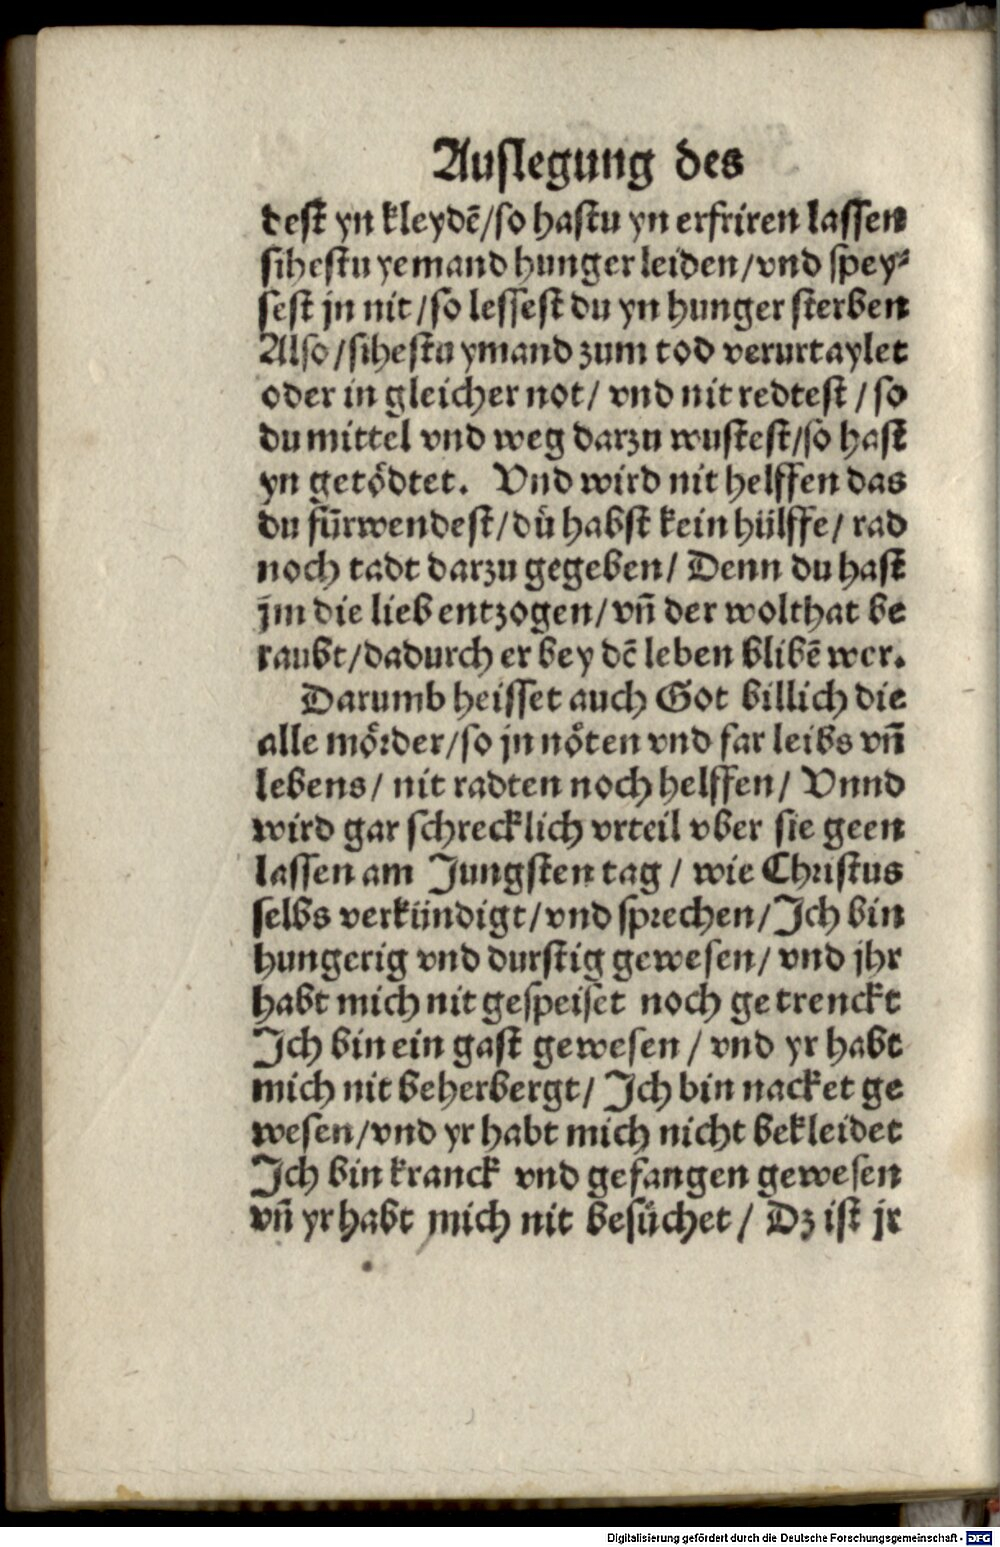 Auslegung des
dest yn kleydē/so hastu yn erfriren lassen
sihestu yemand hunger leiden/vnd spey⸗
sest jn nit/so lessest du yn hunger sterben
Also/sihestu ymand zum tod verurtaylet
oder in gleicher not/ vnd nit redtest/so
du mittel vnd weg darzu wustest/so hast
yn getödtet. Vnd wird nit helffen das
du fürwendest/du habst kein hülffe/ rad
noch tadt darzu gegeben/ Denn du hast
jm die lieb entzogen/vn̄ der wolthat be
raubt/dadurch er bey dē leben blibē wer.
Darumb heisset auch Got billich die
alle mörder/so jn nöten vnd far leibs vn̄
lebens/ nit radten noch helffen/ Vnnd
wird gar schrecklich vrteil vber sie geen
lassen am Jungsten tag/ wie Christus
selbs verkündigt/vnd sprechen/Ich bin
hungerig vnd durstig gewesen/ vnd jhr
habt mich nit gespeiset noch getrenckt
Ich bin ein gast gewesen/ vnd yr habt
mich nit beherbergt/ Ich bin nacket ge
wesen/vnd yr habt mich nicht bekleidet
Ich bin kranck vnd gefangen gewesen
vn̄ yr habt mich nit besüchet/ Dz ist jr
Digitalisierung gefördert durch die Deutsche Forschungsgemeinschaft - DFG